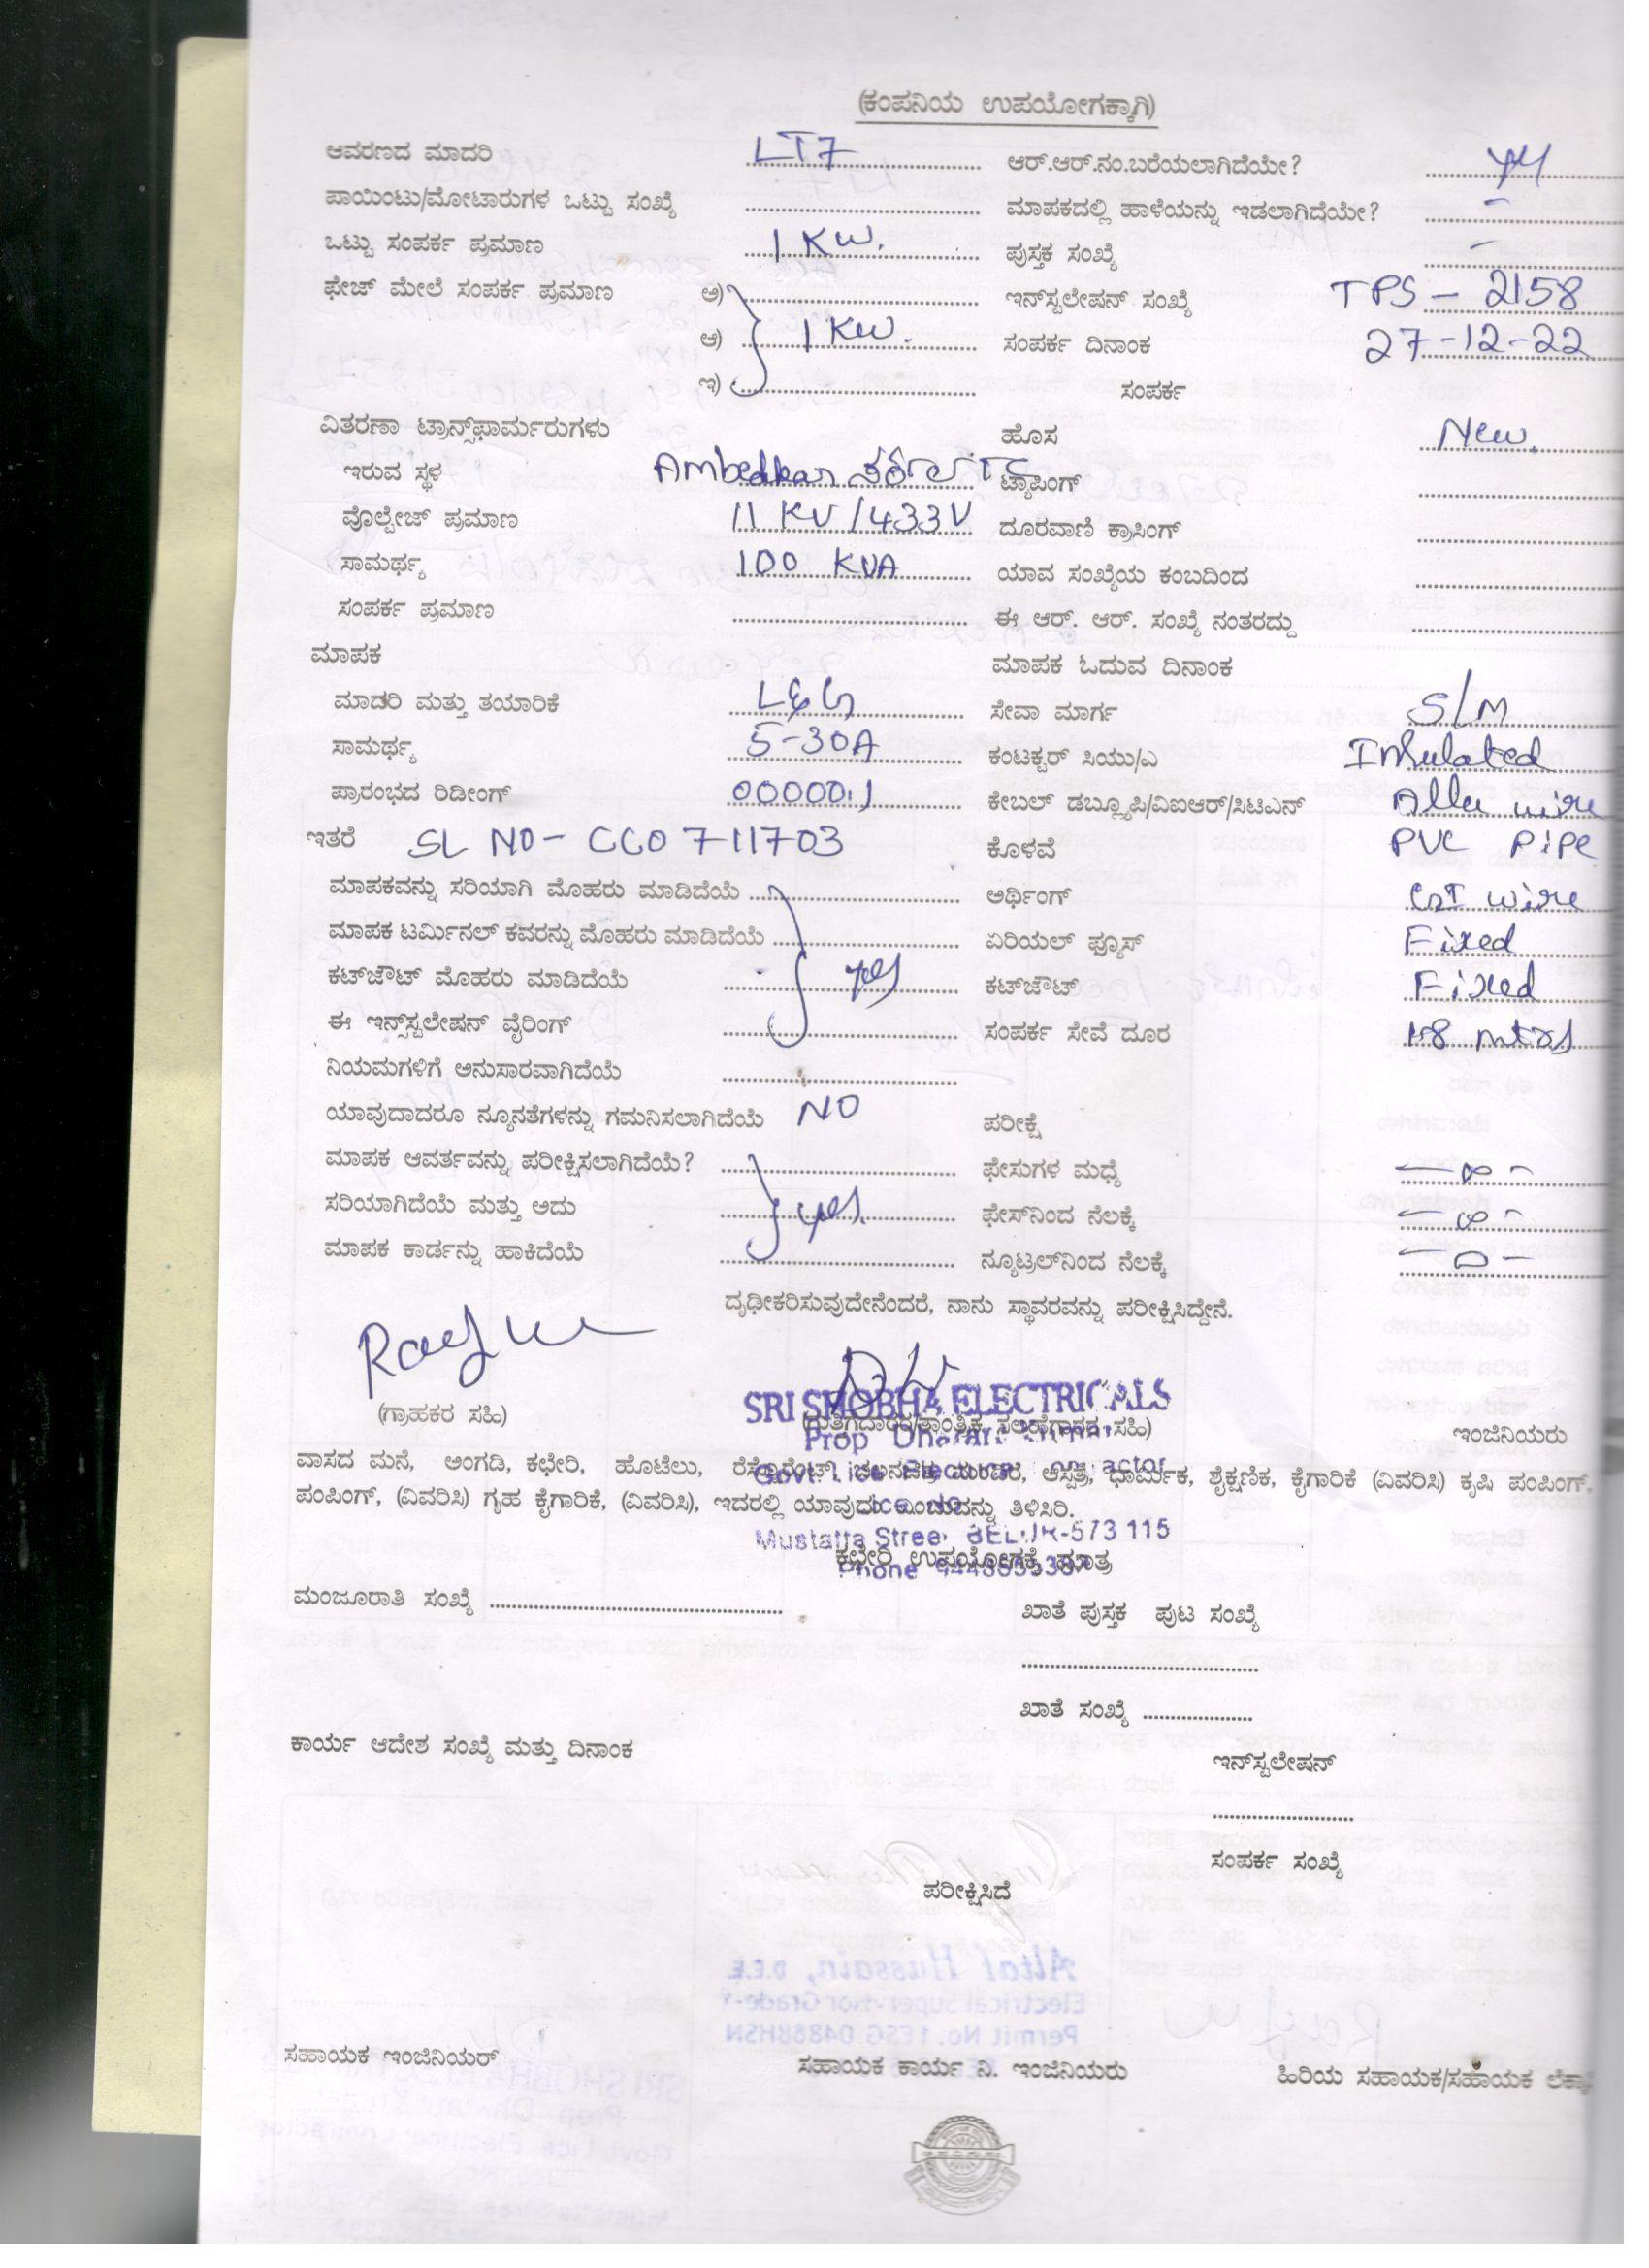 (ಕಂಪನಿಯ ಉಪಯೋಗಕ್ಕಾಗಿ)
ಆವರಣದ ಮಾದರಿ LT7 ಆರ್.ಆರ್.ನಂ.ಬರೆಯಲಾಗಿದೆಯೇ?
ಪಾಯಿಂಟು/ಮೋಟಾರುಗಳ ಒಟ್ಟು ಸಂಖ್ಯೆ ಮಾಪಕದಲ್ಲಿ ಹಾಳೆಯನ್ನು ಇಡಲಾಗಿದೆಯೇ? -
ಒಟ್ಟು ಸಂಪರ್ಕ ಪ್ರಮಾಣ 1 KW. ಪುಸ್ತಕ ಸಂಖ್ಯೆ -
ಫೇಜ್ ಮೇಲೆ ಸಂಪರ್ಕ ಪ್ರಮಾಣ ಅ) ಇನ್‌ಸ್ಟಲೇಷನ್ ಸಂಖ್ಯೆ TPS - 2158
ಆ) 1 KW. ಸಂಪರ್ಕ ದಿನಾಂಕ 27-12-22
ಇ) ಸಂಪರ್ಕ
ವಿತರಣಾ ಟ್ರಾನ್ಸ್‌ಫಾರ್ಮರುಗಳು ಹೊಸ New.
ಇರುವ ಸ್ಥಳ Ambedkar ಟ್ಯಾಪಿಂಗ್
ವೊಲ್ಟೇಜ್ ಪ್ರಮಾಣ 11 KV/433V ದೂರವಾಣಿ ಕ್ರಾಸಿಂಗ್
ಸಾಮರ್ಥ್ಯ 100 KVA ಯಾವ ಸಂಖ್ಯೆಯ ಕಂಬದಿಂದ
ಸಂಪರ್ಕ ಪ್ರಮಾಣ ಈ ಆರ್. ಆರ್. ಸಂಖ್ಯೆ ನಂತರದ್ದು
ಮಾಪಕ ಮಾಪಕ ಓದುವ ದಿನಾಂಕ
ಮಾದರಿ ಮತ್ತು ತಯಾರಿಕೆ L&G ಸೇವಾ ಮಾರ್ಗ S/M
ಸಾಮರ್ಥ್ಯ 5-30A ಕಂಟಕ್ಟರ್ ಸಿಯು/ಎ Insulated
ಪ್ರಾರಂಭದ ರಿಡೀಂಗ್ 00000.1 ಕೇಬಲ್ ಡಬ್ಲ್ಯೂಪಿ/ವಿಐಆರ್/ಸಿಟಿಎನ್ Allu wire
ಇತರೆ SL NO - CC0 711703 ಕೊಳವೆ PVC PiPe
ಮಾಪಕವನ್ನು ಸರಿಯಾಗಿ ಮೊಹರು ಮಾಡಿದೆಯೆ ಅರ್ಥಿಂಗ್ GI wire
ಮಾಪಕ ಟರ್ಮಿನಲ್ ಕವರನ್ನು ಮೊಹರು ಮಾಡಿದೆಯೆ ಏರಿಯಲ್ ಫ್ಯೂಸ್ Fixed
ಕಟ್‌ಔಟ್ ಮೊಹರು ಮಾಡಿದೆಯೆ yes ಕಟ್‌ಔಟ್ Fixed
ಈ ಇನ್ಸ್‌ಸ್ಟಲೇಷನ್ ವೈರಿಂಗ್ ಸಂಪರ್ಕ ಸೇವೆ ದೂರ mtrs
ನಿಯಮಗಳಿಗೆ ಅನುಸಾರವಾಗಿದೆಯೆ
ಯಾವುದಾದರೂ ನ್ಯೂನತೆಗಳನ್ನು ಗಮನಿಸಲಾಗಿದೆಯೆ NO ಪರೀಕ್ಷೆ
ಮಾಪಕ ಆವರ್ತವನ್ನು ಪರೀಕ್ಷಿಸಲಾಗಿದೆಯೆ? ಫೇಸುಗಳ ಮಧ್ಯೆ - ∞ -
ಸರಿಯಾಗಿದೆಯೆ ಮತ್ತು ಅದು yes. ಫೇಸ್‌ನಿಂದ ನೆಲಕ್ಕೆ - ∞ -
ಮಾಪಕ ಕಾರ್ಡನ್ನು ಹಾಕಿದೆಯೆ ನ್ಯೂಟ್ರಲ್‌ನಿಂದ ನೆಲಕ್ಕೆ - 0 -
ದೃಢೀಕರಿಸುವುದೇನೆಂದರೆ, ನಾನು ಸ್ಥಾವರವನ್ನು ಪರೀಕ್ಷಿಸಿದ್ದೇನೆ.
SRI SHOBHA ELECTRICALS
(ಗ್ರಾಹಕರ ಸಹಿ) (ಗುತ್ತಿಗೆದಾರರ/ತಾಂತ್ರಿಕ ಸಲಹೆಗಾರರ ಸಹಿ) ಇಂಜಿನಿಯರು
Prop
ವಾಸದ ಮನೆ, ಅಂಗಡಿ, ಕಛೇರಿ, ಹೊಟೆಲು, ರೆಸ್ಟೊರೆಂಟ್, ಚಲನಚಿತ್ರ ಮಂದಿರ, ಆಸ್ಪತ್ರೆ, ಧಾರ್ಮಿಕ, ಶೈಕ್ಷಣಿಕ, ಕೈಗಾರಿಕೆ (ವಿವರಿಸಿ) ಕೃಷಿ ಪಂಪಿಂಗ್,
ಪಂಪಿಂಗ್, (ವಿವರಿಸಿ) ಗೃಹ ಕೈಗಾರಿಕೆ, (ವಿವರಿಸಿ), ಇದರಲ್ಲಿ ಯಾವುದು ಎಂಬುದನ್ನು ತಿಳಿಸಿರಿ.
BELUR-573 115
ಕಛೇರಿ ಉಪಯೋಗಕ್ಕೆ ಮಾತ್ರ
Phone
ಮಂಜೂರಾತಿ ಸಂಖ್ಯೆ ಖಾತೆ ಪುಸ್ತಕ ಪುಟ ಸಂಖ್ಯೆ
ಖಾತೆ ಸಂಖ್ಯೆ
ಕಾರ್ಯ ಆದೇಶ ಸಂಖ್ಯೆ ಮತ್ತು ದಿನಾಂಕ ಇನ್‌ಸ್ಟಲೇಷನ್
ಸಂಪರ್ಕ ಸಂಖ್ಯೆ
ಪರೀಕ್ಷಿಸಿದೆ
ಸಹಾಯಕ ಇಂಜಿನಿಯರ್ ಸಹಾಯಕ ಕಾರ್ಯ ನಿ. ಇಂಜಿನಿಯರು ಹಿರಿಯ ಸಹಾಯಕ/ಸಹಾಯಕ